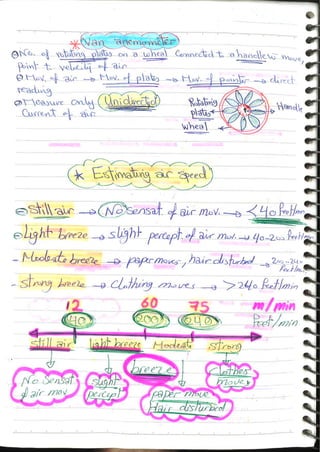 * Van anemometer
No. of rotating plates on a wheel Connected to a handle move,
point to velocity of air
Mov. of air → Mov. of plates → Mov. of pointer → direct
reading
Measure only Unidirected
Current of air
Rotating
plates
Handle
wheel
* Estimating air speed
Still air → No Sensat. of air mov. → < 40 feet/min
Light breeze → slight percept. of air mov. → 40-200 feet/min
- Moderate breeze → paper moves, hair disturbed → 200-240
feet/min
- strong breeze → clothing moves → > 240 feet/min
12 60 75 m/min
40 200 240 foot/min
still air light breeze Moderate strong
breeze
No Sensat
of air mov
slight
percept
paper move
Hair disturbed
Clothes
move